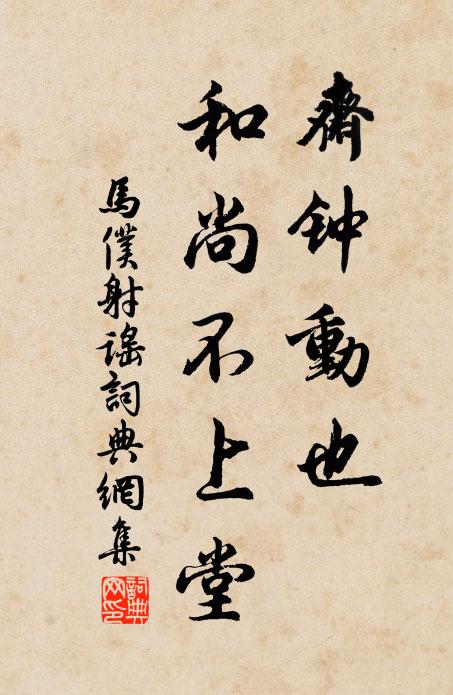 齋钟動也
和尚不上堂
馬僕射謠詞典網集
詞典
网印